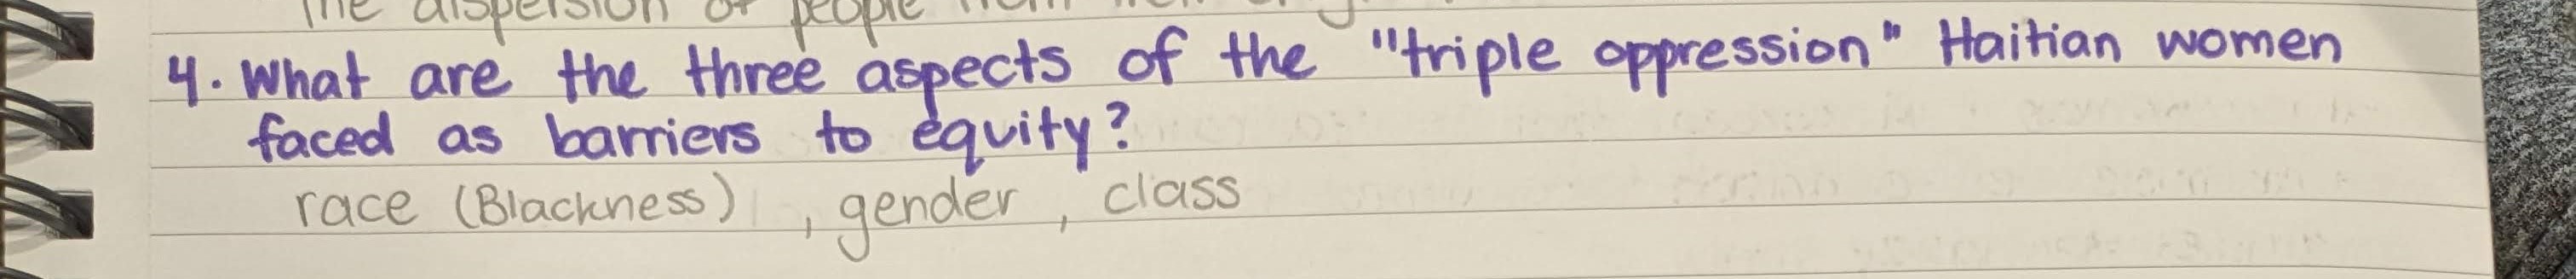 The dispersion of people
4. What are the three aspects of the "triple oppression" Haitian women
faced as barriers to equity?
race (Blackness) , gender , class